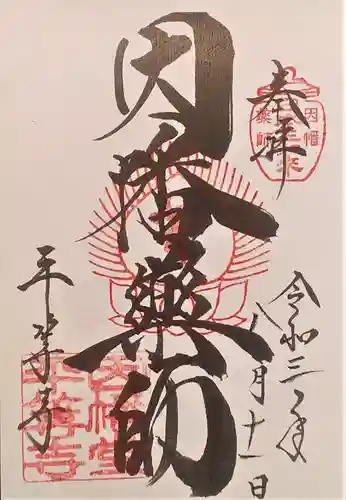 奉拝
令和三年
八月十一日
因幡薬師
平等寺
因幡
薬師
因幡堂
平等寺